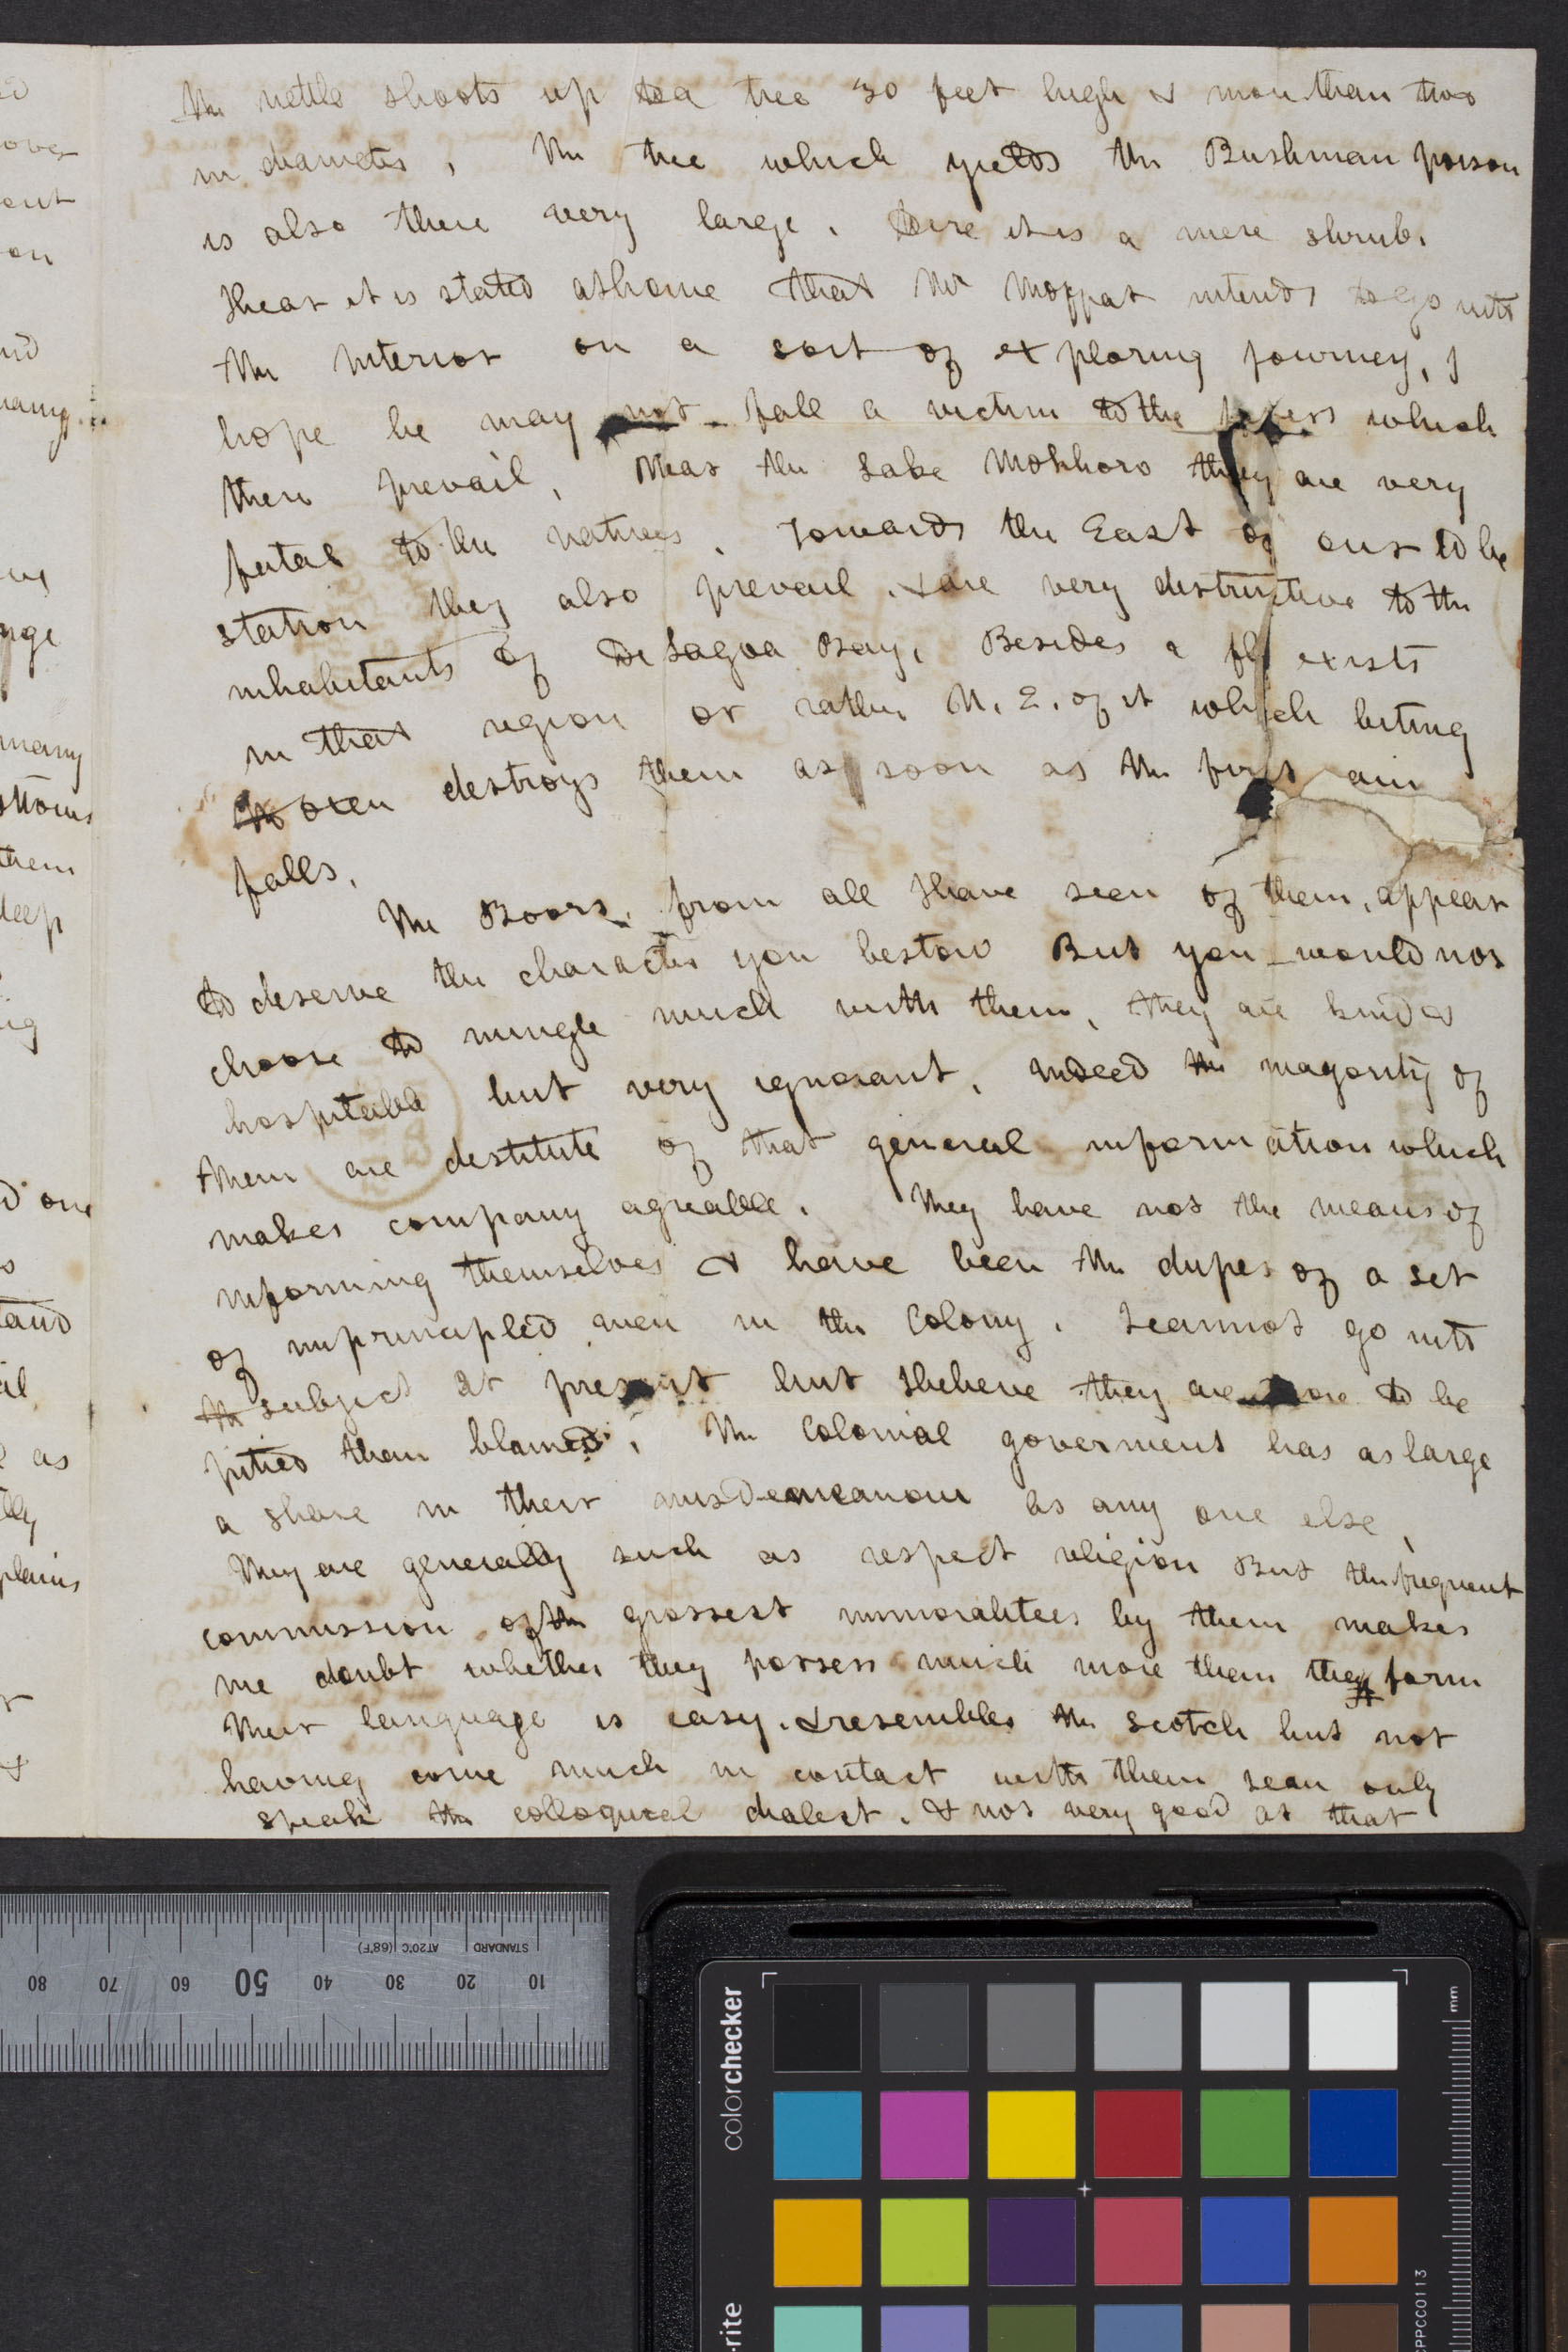 The nettle shoots up to a tree 30 feet high & more than two
in diameter, The tree which yields the Bushman poison
is also there very large. Here it is a mere shrub.
I hear it is stated at home that Mr Moffat intends to go into
the Interior on a sort of exploring journey, I
hope he may not fall a victim to the fevers which
there prevail, Near the Lake Mokhoro they are very
fatal to the natives. Towards the East of our to be
station they also prevail. & are very destructive to the
inhabitants of De Lagoa Bay, Besides a fly exists
in that region or rather N. E. of it which biting
the oxen destroys them as soon as the first rain
falls.
The Boors, from all I have seen of them, appear
to deserve the character you bestow But you would not
choose to mingle much with them, they are kind &
hospitable but very ignorant, indeed the magority of
them are destitute of that general information which
makes company agreable. They have not the means of
informing themselves & have been the dupes of a set
of unprincipled men in the Colony. I cannot go into
the subject at present but I believe they are more to be
pitied than blamed, The Colonial goverment has as large
a share in their misdemeanour as any one else,
They are generally such as respect religion But the frequent
commission of the grossest immoralitees by them makes
me doubt whether they possess much more them the form
Their language is easy. & resembles the Scotch but not
having come much in contact with them I can only
speak the colloquial dialect. & not very good at that
ove
ent
on
many
ottoms
them
deep
one
as
plains
80 70 60 50 40 30 20 10
STANDARD AT 20°C (68°F)
colorchecker
mm